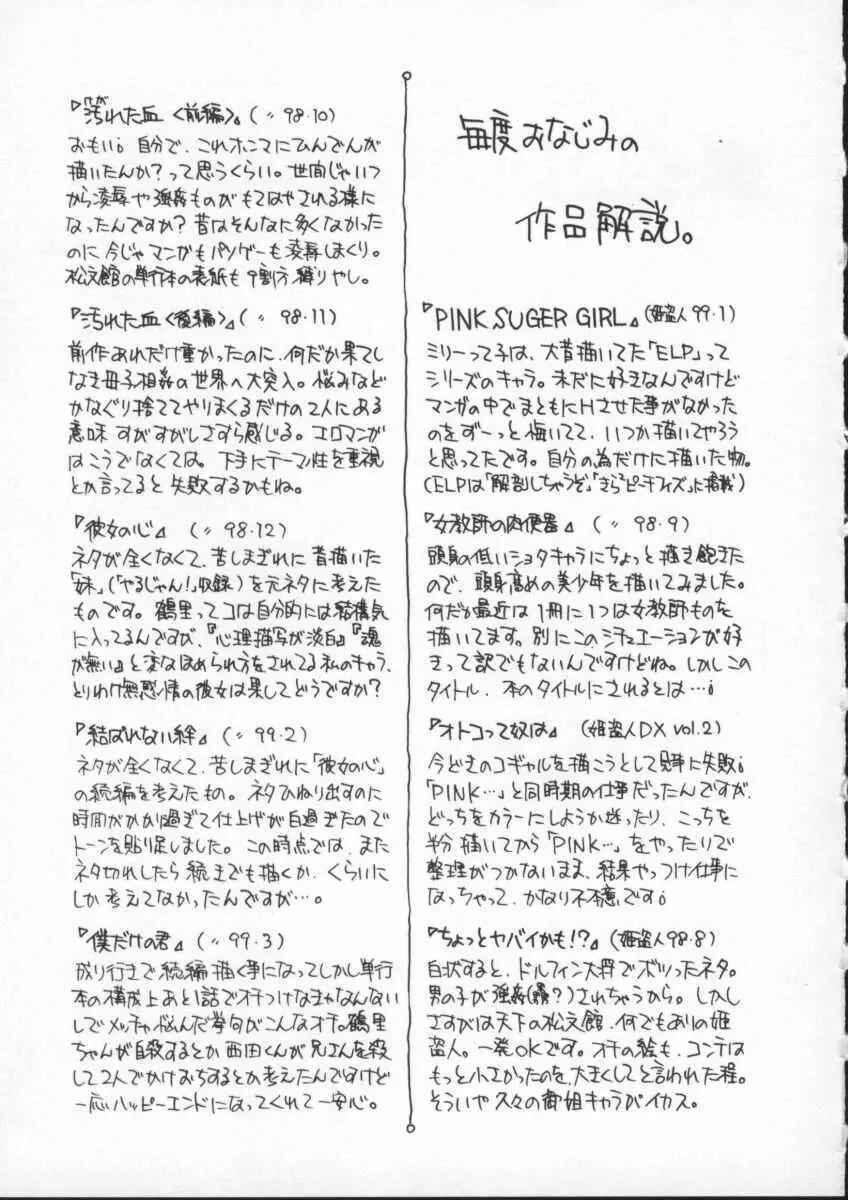 毎度おなじみの
作品解説。
『PINK SUGER GIRL』(姫盗人99・1)
ミリーって子は、大昔描いてた「ELP」って
シリーズのキャラ。未だに好きなんですけど
マンガの中でまともにHさせた事がなかった
のをずーっと悔いてて、いつか描いてやろう
と思ってたです。自分の為だけに描いた物。
(ELPは「解剖しちゃうぞ」「きらら゛ピーチフィズ」に掲載)
『女教師の肉便器』(〃 98・9)
頭身の低いショタキャラにちょっと描き飽きた
ので、頭身高めの美少年を描いてみました。
何だか最近は1冊に1つは女教師ものを
描いてます。別にこのシチュエーションが好
きって訳でもないんですけどね。しかしこの
タイトル、本のタイトルにされるとは…!
『オトコって奴は』(姫盗人DX vol.2)
今どきのコギャルを描こうとして見事に失敗!
「PINK…」と同時期の仕事だったんですが、
どっちをカラーにしようか迷ったり、こっちを
半分描いてから「PINK…」をやったりで
整理がつかないまま、結果やっつけ仕事に
なっちゃって、かなり不本意です!
『ちょっとヤバイかも!?』(姫盗人98・8)
白状すると、ドルフィン大将でボツったネタ。
男の子が強姦(?)されちゃうから。しかし
さすがは天下の松文館、何でもありの姫
盗人。一発OKです。オチの絵も、コンテは
もっと小さかったのを、大きくしてと言われた程。
そういや久々の御姐キャラがイカス。
『汚れた血〈前編〉』(〃 98・10)
おもい! 自分で、これホンマにひんでんが
描いたんか?って思うくらい。世間じゃいつ
から凌辱や強姦ものがもてはやされる様に
なったんですか? 昔はそんなに多くなかった
のに今じゃマンガもパソゲーも凌辱しまくり。
松文館の単行本の表紙も9割方縛りやし。
『汚れた血〈後編〉』(〃 98・11)
前作あれだけ重かったのに、何だか果てし
なき母子相姦の世界へ大突入。悩みなど
かなぐり捨ててやりまくるだけの2人にある
意味すがすがしさすら感じる。エロマンガ
はこうでなくては。下手にテーマ性を重視
とか言ってると失敗するかもね。
『彼女の心』(〃 98・12)
ネタが全くなくて、苦しまぎれに昔描いた
「妹」(「やるじゃん!」収録)を元ネタに考えた
ものです。鶴里ってコは自分的には結構気
に入ってるんですが、『心理描写が淡白』『魂
が無い』と変なほめられ方をされてる私のキャラ、
とりわけ無感情の彼女は果してどうですか?
『結ばれない絆』(〃 99・2)
ネタが全くなくて、苦しまぎれに「彼女の心」
の続編を考えたもの。ネタひねり出すのに
時間がかかり過ぎて仕上げが白過ぎたので
トーンを貼り足しました。この時点では、また
ネタ切れしたら続きでも描くか、くらいに
しか考えてなかったんですが…。
『僕だけの君』(〃 99・3)
成り行きで続編描く事になってしかし単行
本の構成上あと1話でオチつけなきゃなんない
しでメッチャ悩んだ挙句がこんなオチ。鶴里
ちゃんが自殺するとか西田くんが兄さんを殺
して2人でかけおちするとか考えたんですけど
一応ハッピーエンドになってくれて一安心。